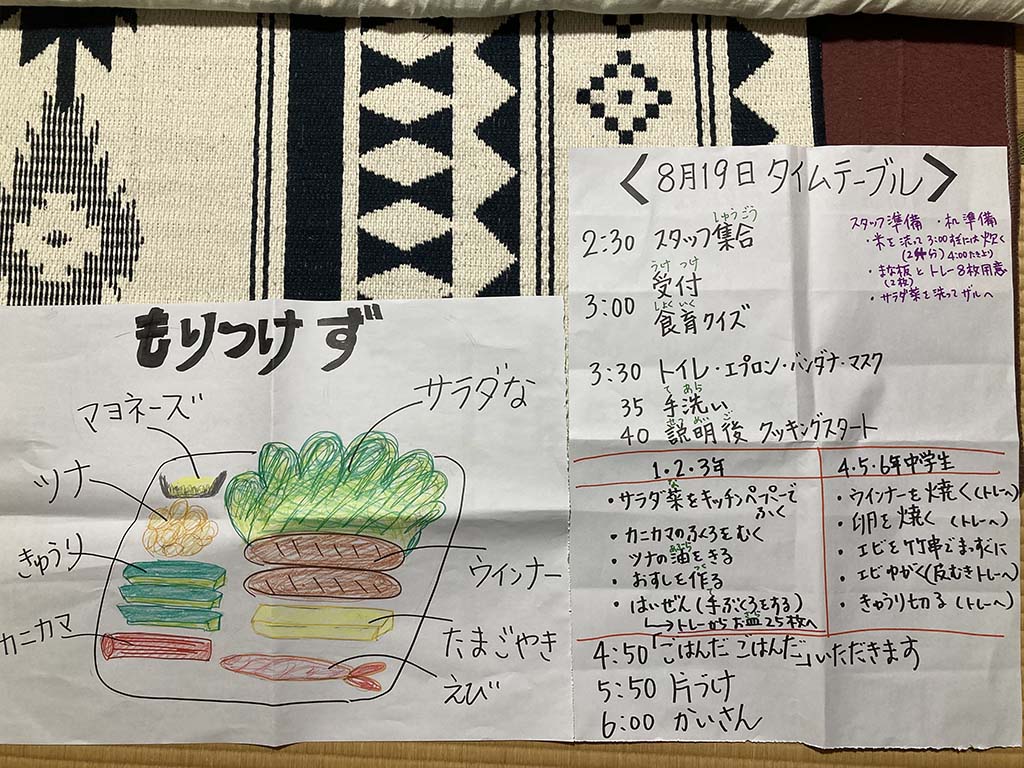 もりつけず
マヨネーズ
サラダな
ツナ
きゅうり
ウインナー
カニカマ
たまごやき
えび
〈8月19日 タイムテーブル〉
しゅうごう
2:30 スタッフ集合
うけ つけ
受付
3:00
しょくいく
食育クイズ
3:30 トイレ・エプロン・バンダナ・マスク
て あら
35 手洗い
せつ めい ご
40 説明後 クッキングスタート
スタッフ準備 ・机準備
・米を洗って3:00
には炊く
4:00
・まな板とトレー8枚用意
(2枚)
・サラダ菜を洗ってザルへ
1・2・3年
な
・サラダ菜をキッチンペーパーで
ふく
・カニカマのふくろをむく
あぶら
・ツナの油をきる
つく
・おすしを作る
て
・はいぜん(手ぶくろをする)
さら
↳トレーからお皿25枚へ
4.5.6年中学生
・ウインナーを焼く(トレーへ)
・卵を焼く (トレーへ)
・エビを竹串でまっすぐに
・エビゆがく(皮むきトレーへ)
・きゅうり切る (トレーへ)
4:50「ごはんだ ごはんだ」いただきます
5:50 片づけ
6:00 かいさん